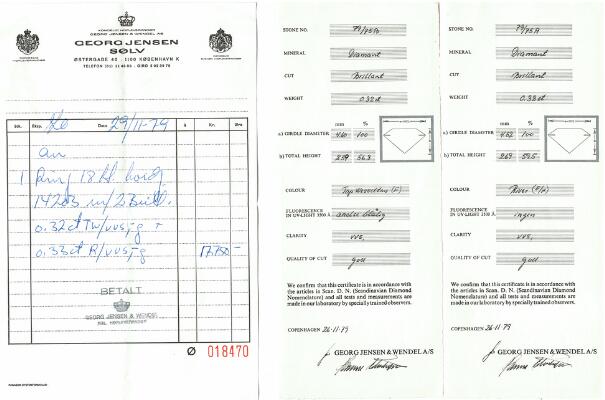 GEORG JENSEN & WENDEL A/S
GEORG JENSEN
SØLV
ØSTERGADE 40 · 1100 KØBENHAVN K
Dato 29/11-79
Kr.
Øre
1 Ring 18 kt.
0.32ct TW/VVS
0.33ct R/VVS
17.750 -
BETALT
GEORG JENSEN & WENDEL
Ø 018470
STONE NO. 79/75A
MINERAL Diamant
CUT Brillant
WEIGHT 0.32 ct
mm %
a) GIRDLE DIAMETER 4.60 100
b) TOTAL HEIGHT 2.59 56.3
COLOUR Top Wesselton (F)
FLUORESCENCE
IN UV-LIGHT
CLARITY VVS1
QUALITY OF CUT god
We confirm that this certificate is in accordance with
the articles in Scan. D. N. (Scandinavian Diamond
Nomenclature) and all tests and measurements
are made in our laboratory by specially trained observers.
COPENHAGEN 26-11-79
GEORG JENSEN & WENDEL A/S
STONE NO. 79/75A
MINERAL Diamant
CUT Brillant
WEIGHT 0.33 ct
mm %
a) GIRDLE DIAMETER 4.52 100
b) TOTAL HEIGHT 2.69 59.5
COLOUR River
FLUORESCENCE
IN UV-LIGHT ingen
CLARITY VVS1
QUALITY OF CUT god
We confirm that this certificate is in accordance with
the articles in Scan. D. N. (Scandinavian Diamond
Nomenclature) and all tests and measurements are
made in our laboratory by specially trained observers.
COPENHAGEN 26-11-79
GEORG JENSEN & WENDEL A/S